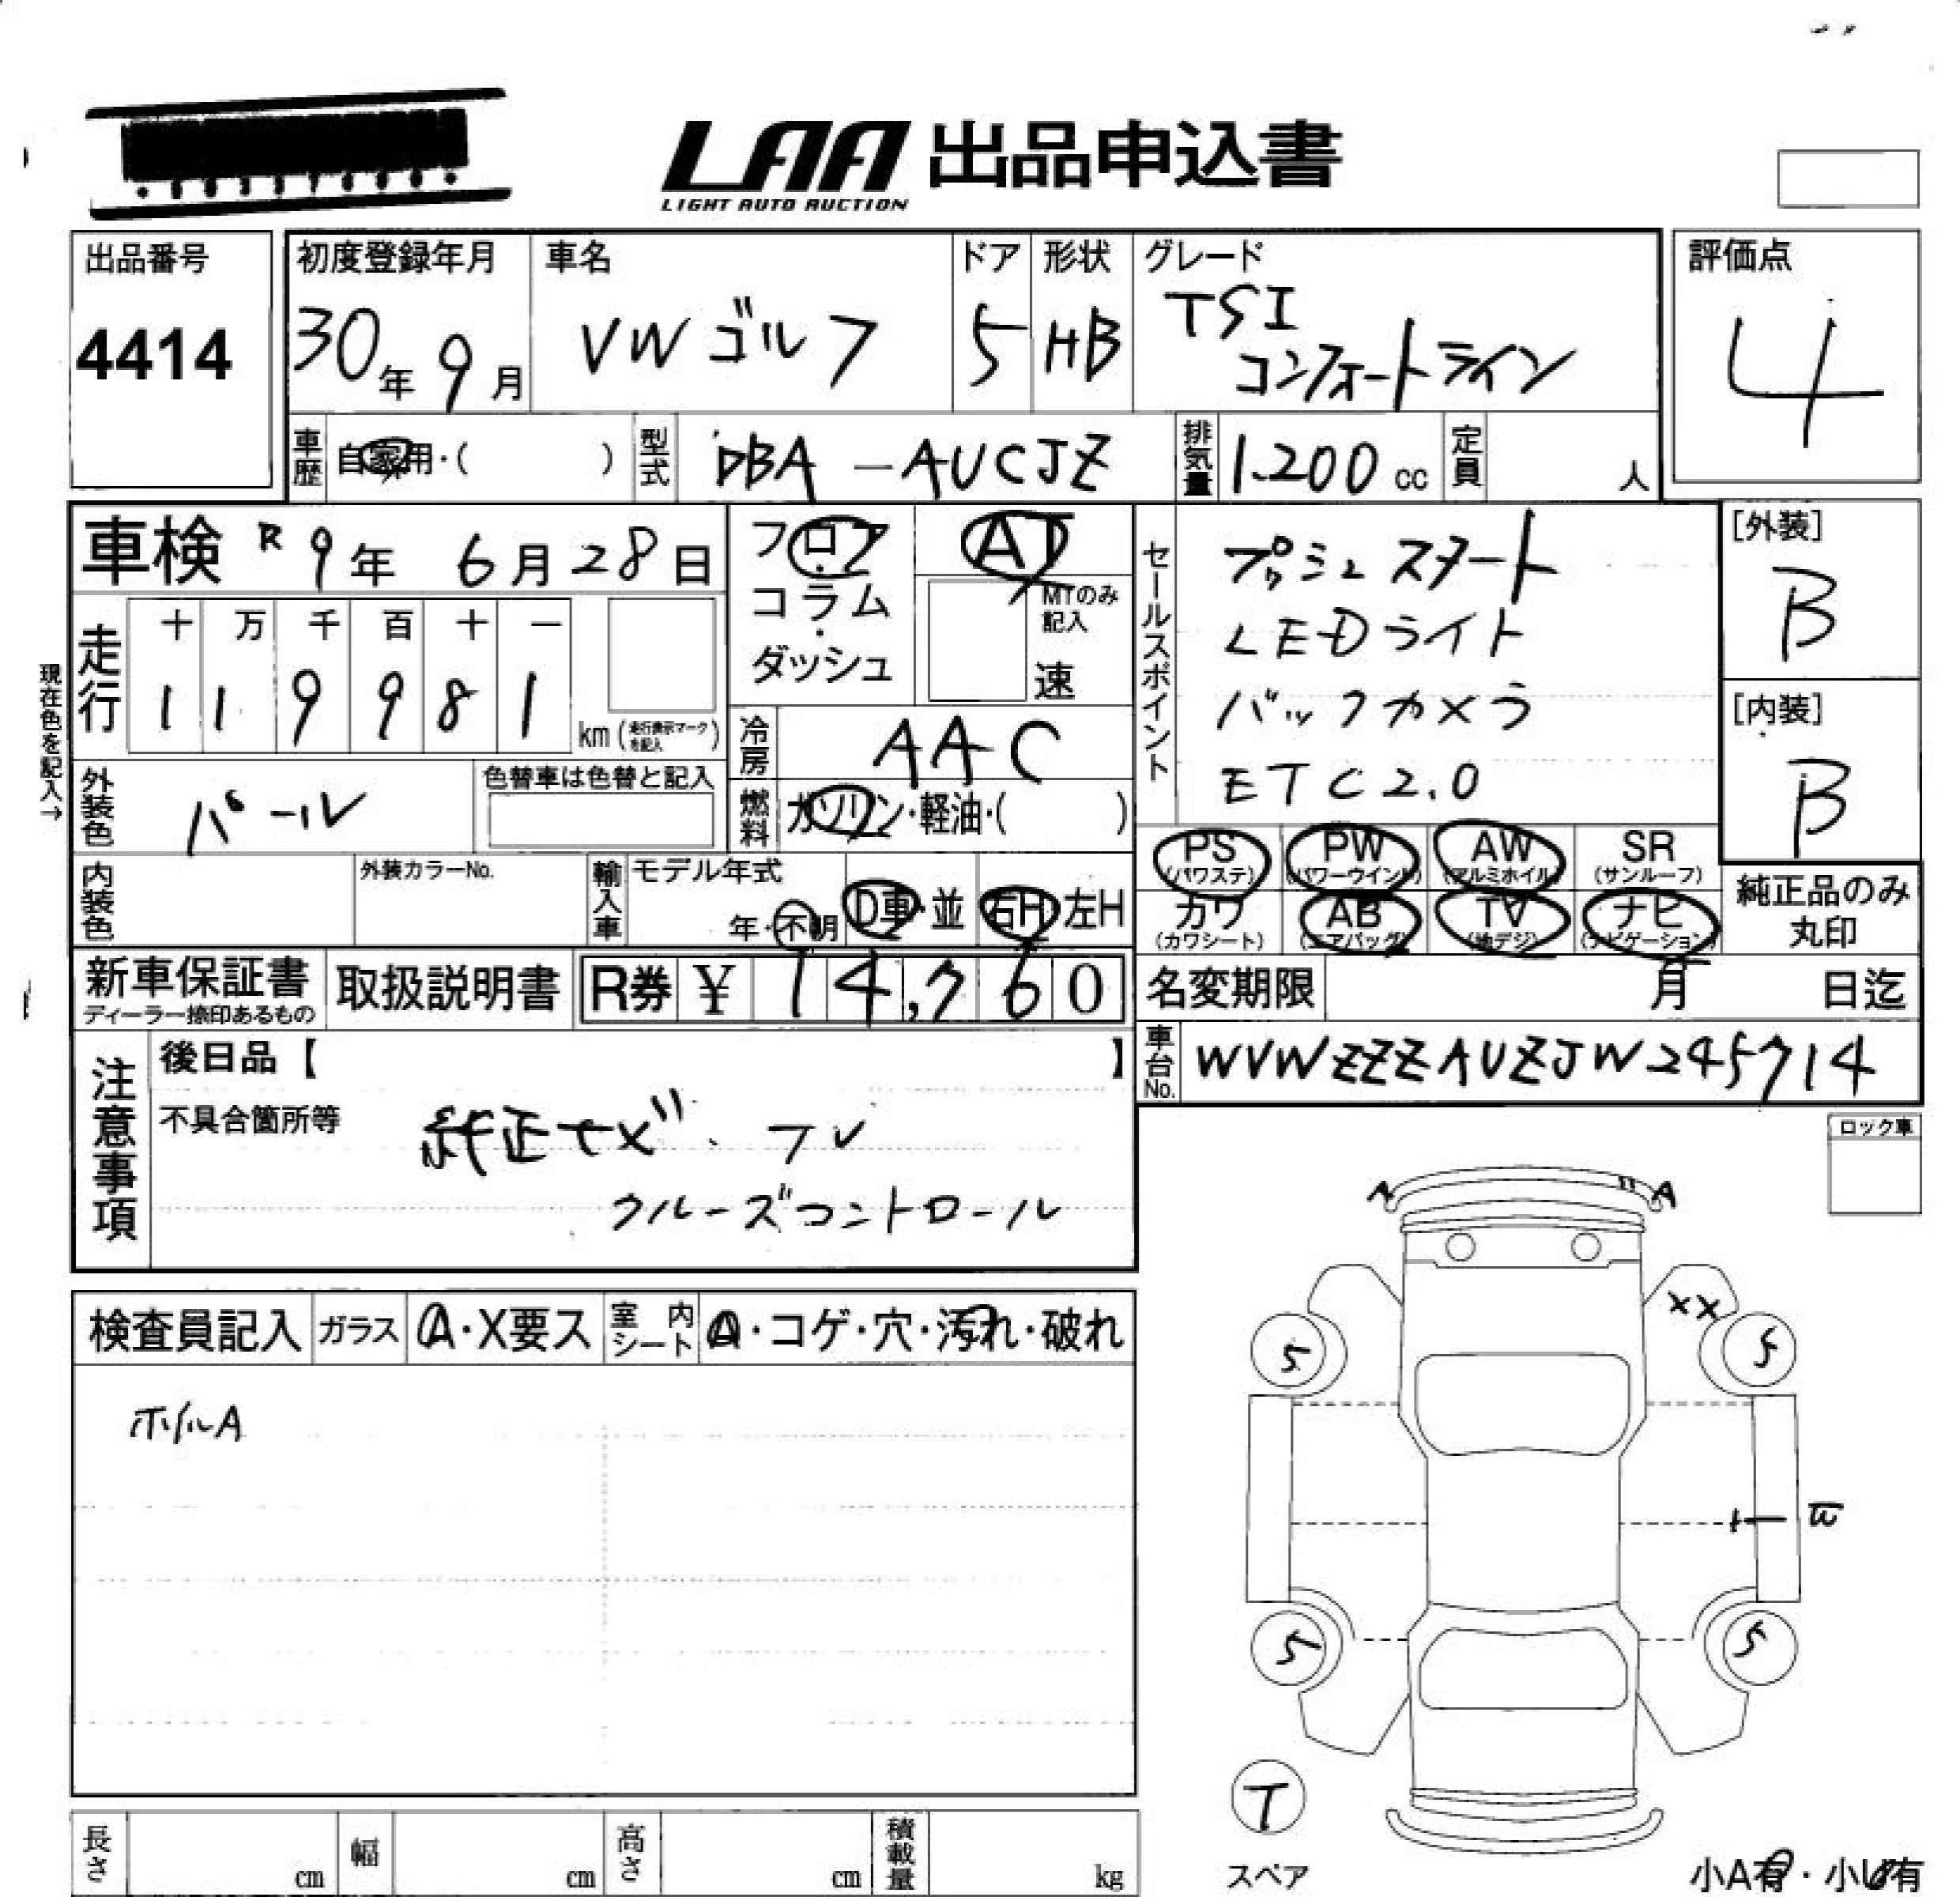 LAA 出品申込書
LIGHT AUTO AUCTION
出品番号
4414
初度登録年月
30年9月
車名
VW ゴルフ
ドア
5
形状
HB
グレード
TSI
コンフォートライン
評価点
4
車歴 自家用・( )
型式 DBA-AUCJZ
排気量 1.200 cc
定員 人
車検 R9年 6月28日
フロア・コラム・ダッシュ
AT
MTのみ記入
速
セールスポイント
プッシュスタート
LEDライト
バックカメラ
ETC2.0
[外装]
B
[内装]
B
現在色を記入→
走行
十 万 千 百 十 一
1 1 9 9 8 1
km (走行表示マークを記入)
冷房 AAC
外装色 パール
色替車は色替と記入
燃料 ガソリン・軽油・( )
PS (パワステ)
PW (パワーウインド)
AW (アルミホイル)
SR (サンルーフ)
カワ (カワシート)
AB (エアバッグ)
TV (地デジ)
ナビ (ナビゲーション)
純正品のみ
丸印
内装色
外装カラーNo.
輸入車
モデル年式
年・不明
D車・並
右H 左H
新車保証書
ディーラー捺印あるもの
取扱説明書
R券 ¥ 14,760
名変期限 月 日迄
車台No. WVWZZZAUZJW245714
注意事項
後日品【 】
不具合箇所等
純正ナビ、TV
クルーズコントロール
ロック車
検査員記入
ガラス A・X要ス
室内シート A・コゲ・穴・汚れ・破れ
ホイルA
A
A
XX
5
5
5
5
T
スペア
長さ cm
幅 cm
高さ cm
積載量 kg
小A有・小U有